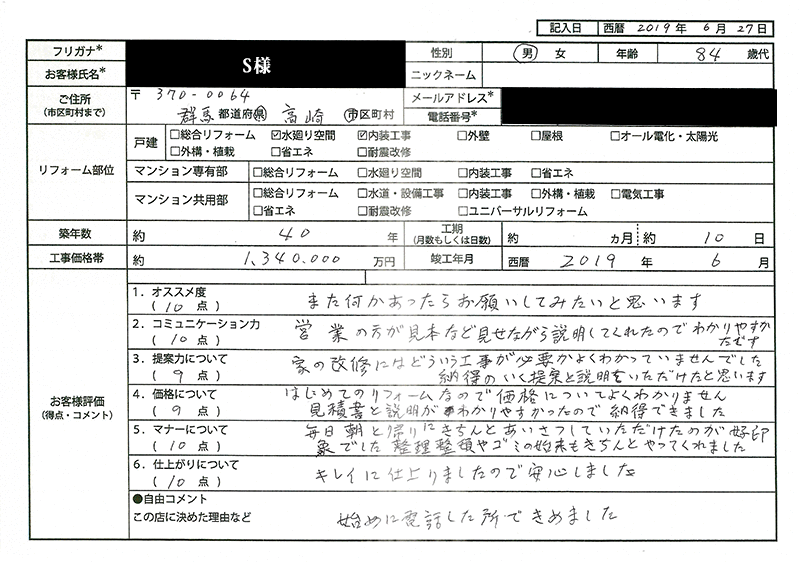 記入日 西暦 2019年 6月 27日
フリガナ* 性別 男 女 年齢 84 歳代
お客様氏名* S様 ニックネーム
ご住所 〒370-0064 メールアドレス*
(市区町村まで) 群馬 都道府県 高崎 市区町村 電話番号*
リフォーム部位 戸建 □総合リフォーム ☑水廻り空間 ☑内装工事 □外壁 □屋根 □オール電化・太陽光
□外構・植栽 □省エネ □耐震改修
マンション専有部 □総合リフォーム □水廻り空間 □内装工事 □省エネ
マンション共用部 □総合リフォーム □水道・設備工事 □内装工事 □外構・植栽 □電気工事
□省エネ □耐震改修 □ユニバーサルリフォーム
築年数 約 40 年 工期 (月数もしくは日数) 約 ヵ月 約 10 日
工事価格帯 約 1,340.000 万円 竣工年月 西暦 2019 年 6 月
お客様評価
(得点・コメント)
1. オススメ度
(10 点) また何かあったらお願いしてみたいと思います
2. コミュニケーション力
(10 点) 営業の方が見本など見せながら説明してくれたのでわかりやすか
たです
3. 提案力について
(9 点) 家の改修にはどういう工事が必要かよくわかっていませんでした
納得のいく提案と説明をいただけたと思います
4. 価格について
(9 点) はじめてのリフォームなので価格についてよくわかりません
見積書と説明がわかりやすかったので納得できました
5. マナーについて
(10 点) 毎日朝と帰りにきちんとあいさつしていただけたのが好印
象でした 整理整頓やゴミの始末もきちんとやってくれました
6. 仕上がりについて
(10 点) キレイに仕上りましたので安心しました
●自由コメント
この店に決めた理由など 始めに電話した所できめました